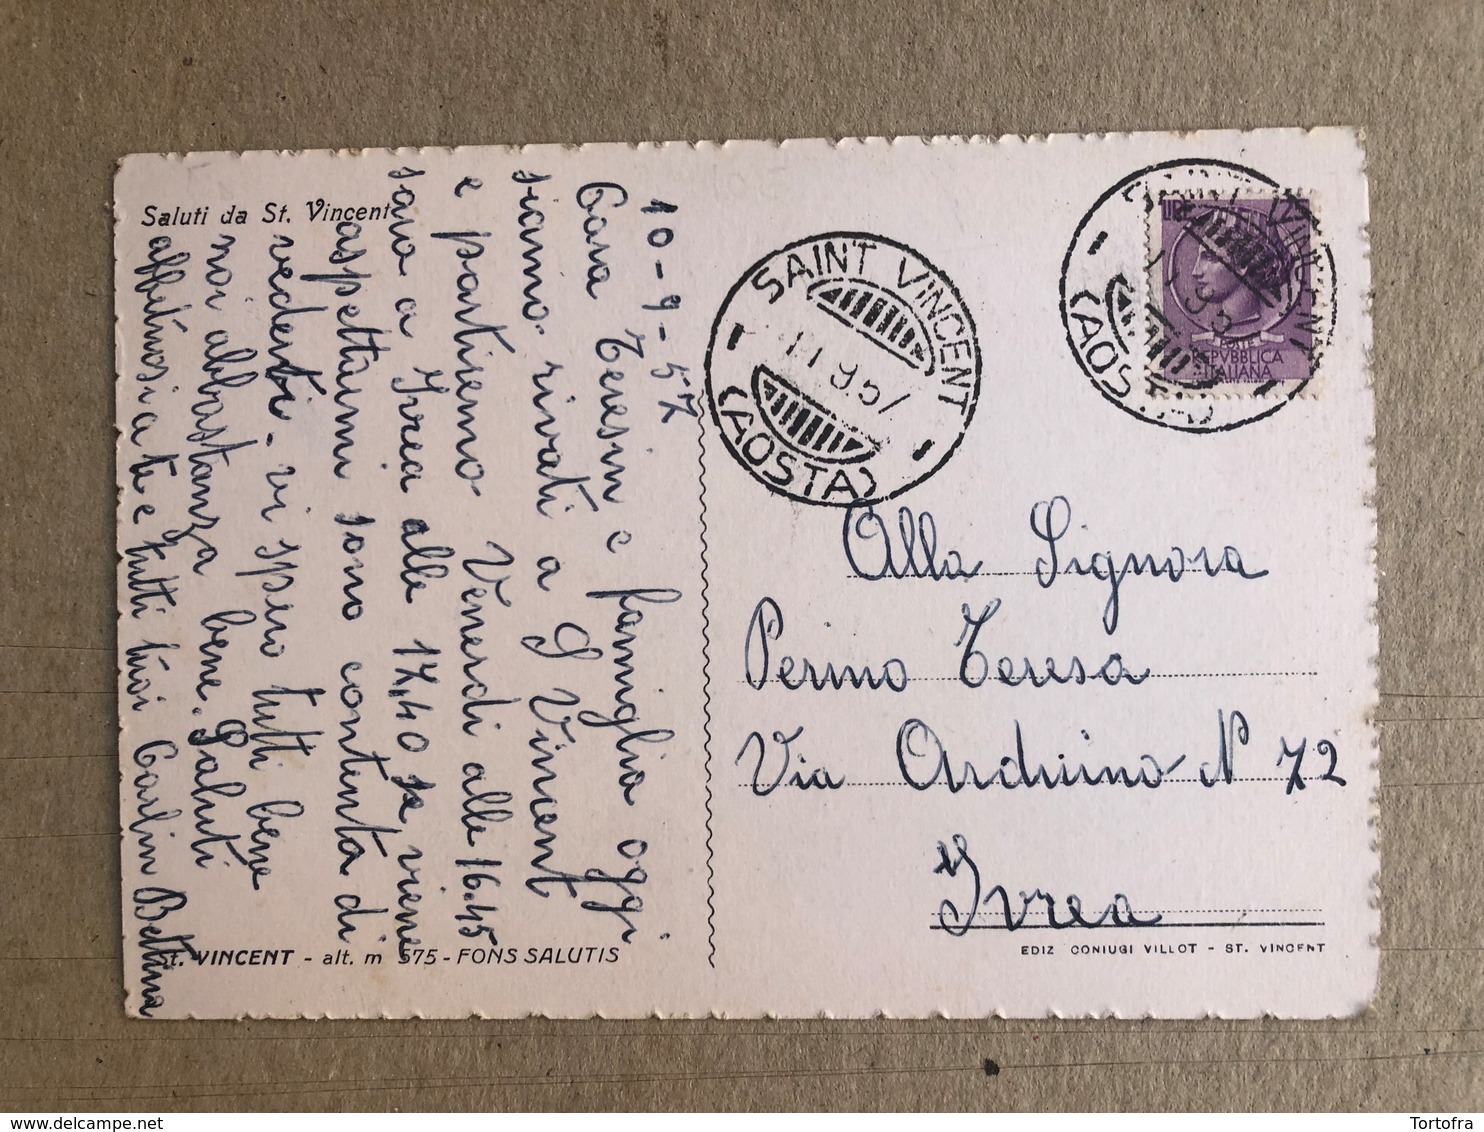 Saluti da St. Vincent
10-9-57
Cara Teresin e famiglia oggi
siamo rivati a S Vincent
e partiremo Venerdi alle 16.45
sara a Ivrea alle 17,40 se viene
aspettarmi sono contenta di
vederti. vi spero tutti bene
noi abbastanza bene. Saluti
affetuosi a te e tutti tuoi Carlin Bettina
St. VINCENT - alt. m 575 - FONS SALUTIS
SAINT VINCENT
11.9.57
(AOSTA)
SAINT VINCENT
(AOSTA)
LIRE
POSTE
REPVBBLICA
ITALIANA
Alla Signora
Perino Teresa
Via Arduino N 72
Ivrea
EDIZ CONIUGI VILLOT - ST. VINCENT
Tortofra